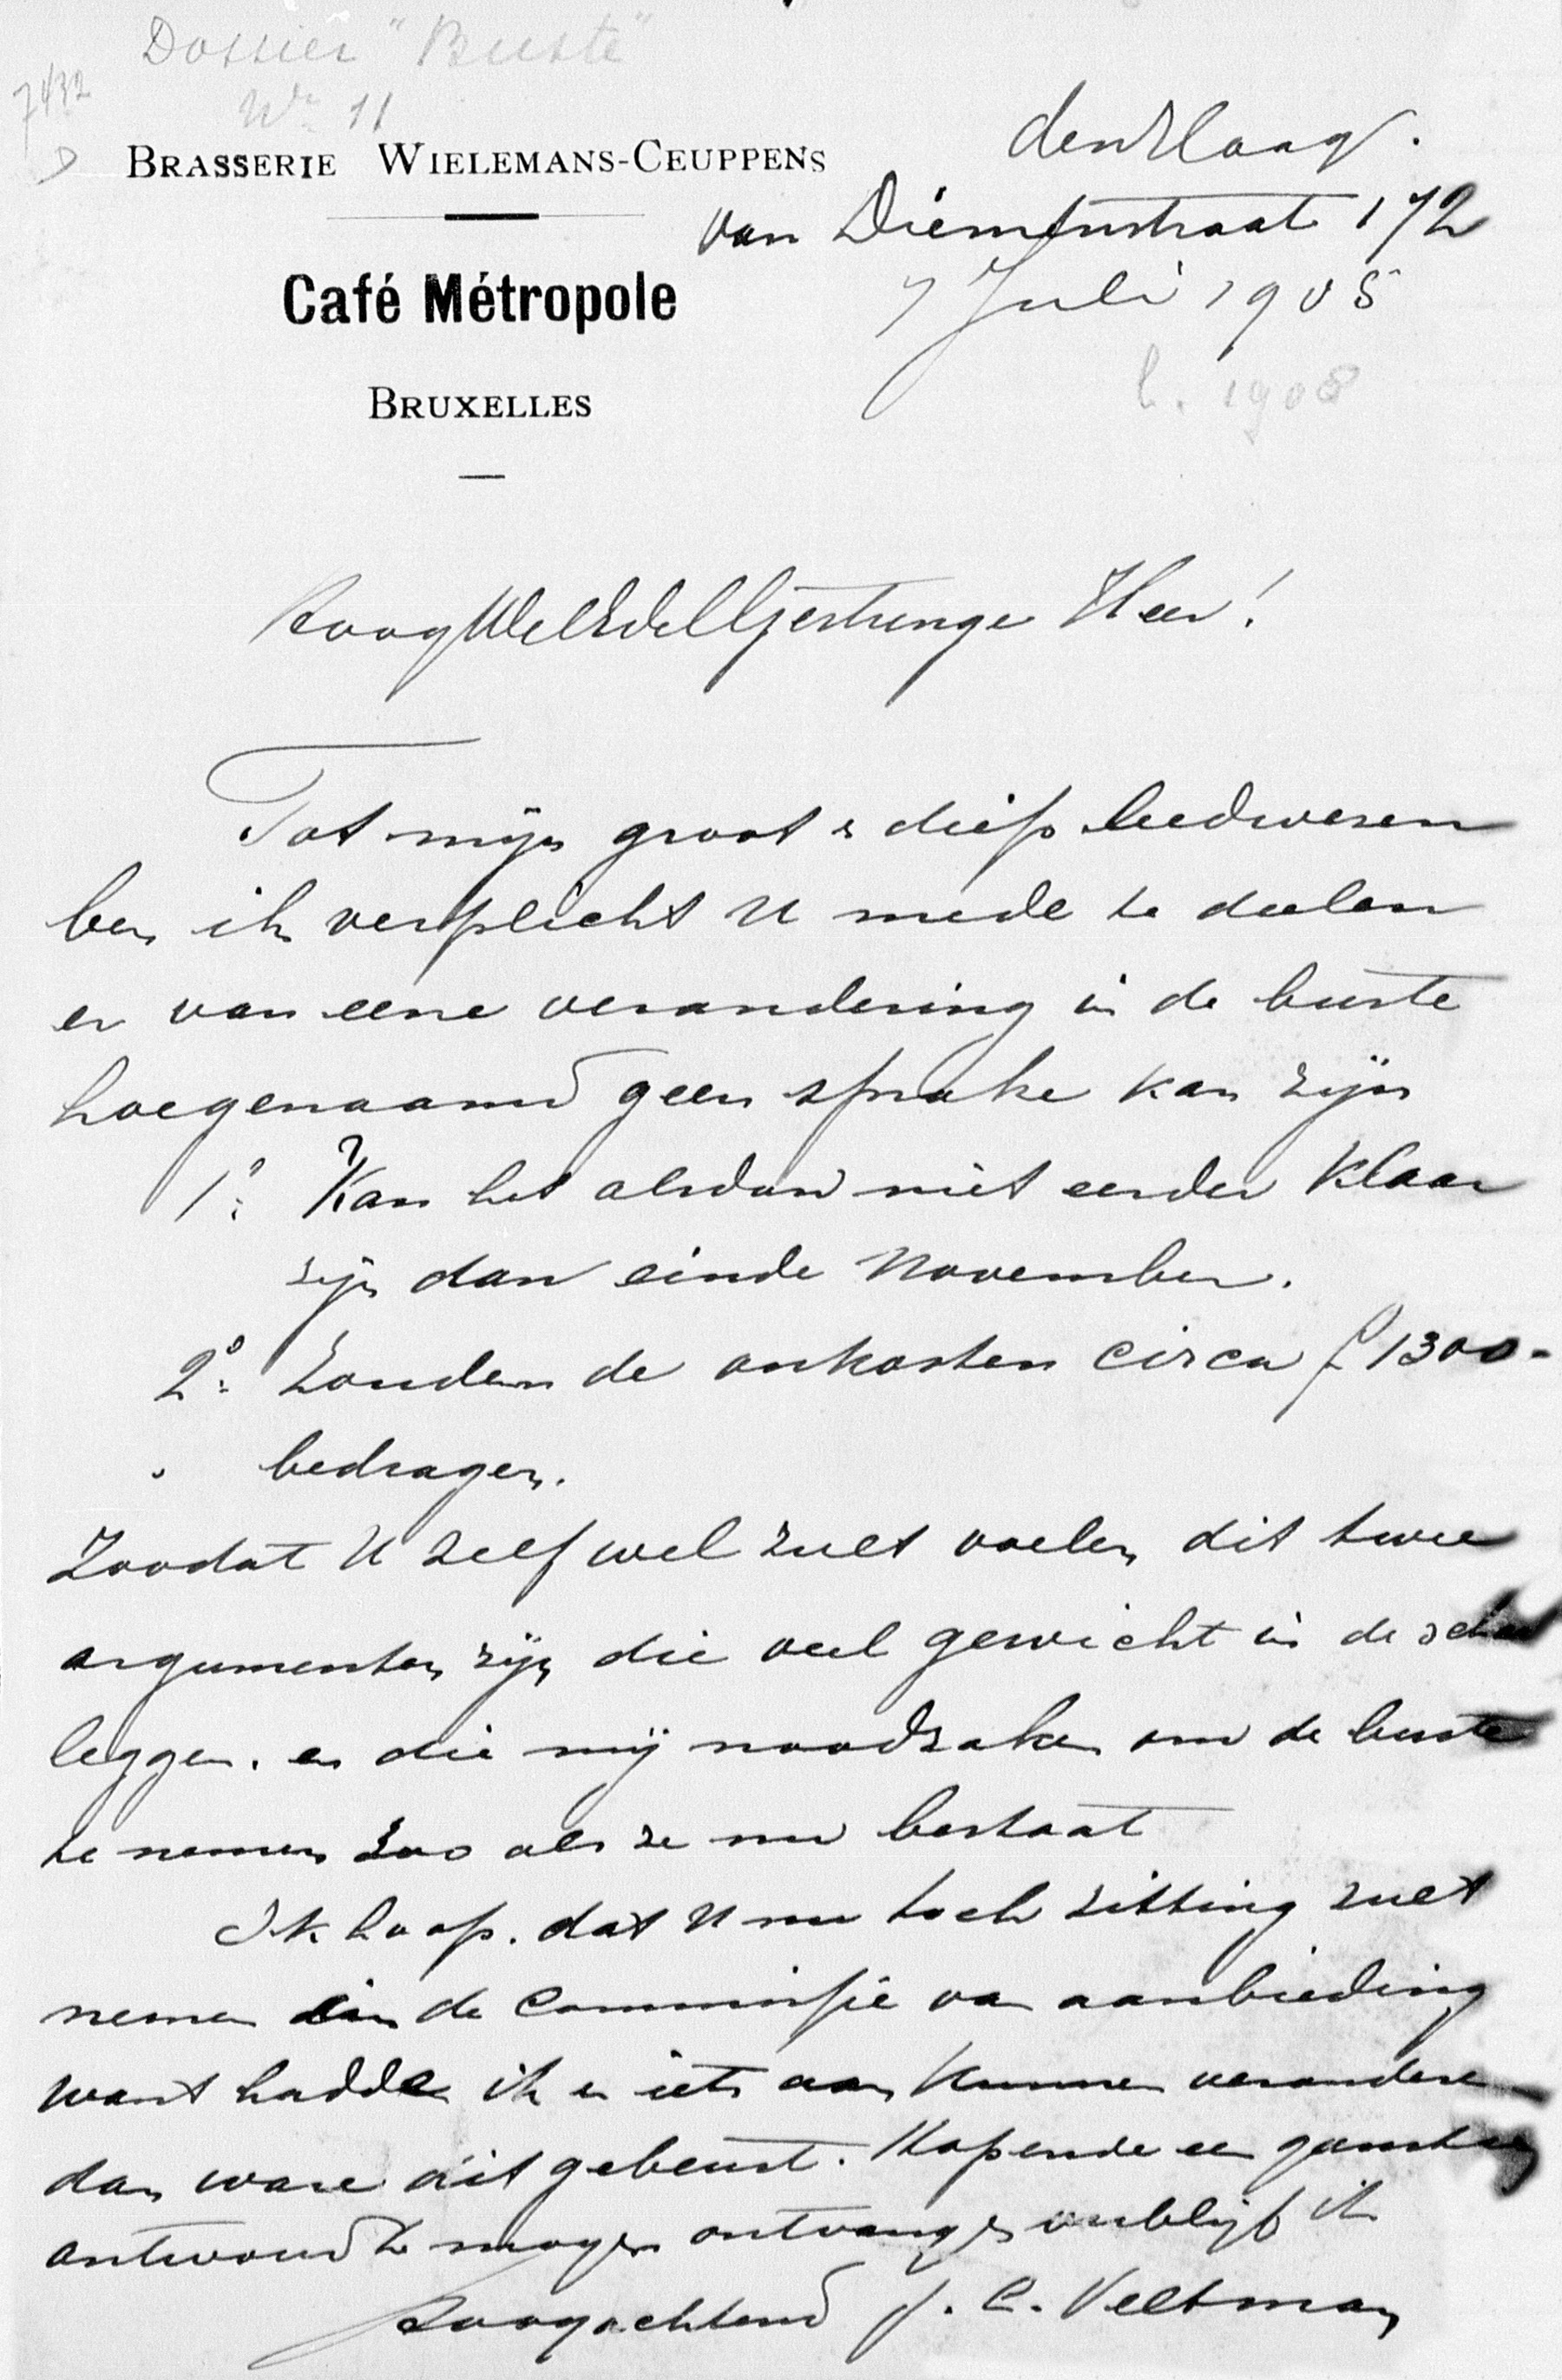 Dossier "Buste"
7432
No 11
D
BRASSERIE WIELEMANS-CEUPPENS
Café Métropole
BRUXELLES
den Haag.
van Diemenstraat 172
7 Juli 1905
l. 1908
HoogWelEdelGestrenge Heer!
Tot mijn groot & diep leedwezen
ben ik verplicht U mede te deelen
er van eene verandering in de buste
hoegenaamd geen sprake kan zijn
1o Kan het alsdan niet eerder klaar
zijn dan einde November.
2o Zouden de onkosten circa f 1300-
bedragen.
Zoodat U zelf wel zult voelen dit twee
argumenten zijn die veel gewicht in de schaal
leggen. en die mij noodzaken om de buste
te nemen zoo als ze nu bestaat
Ik hoop. dat U nu toch zitting zult
nemen in de Commissie van aanbieding
want hadde ik er iets aan kunnen veranderen
dan ware dit gebeurd. Hopende een gunstig
antwoord te mogen ontvangen verblijf ik
Hoogachtend J. C. Veltman